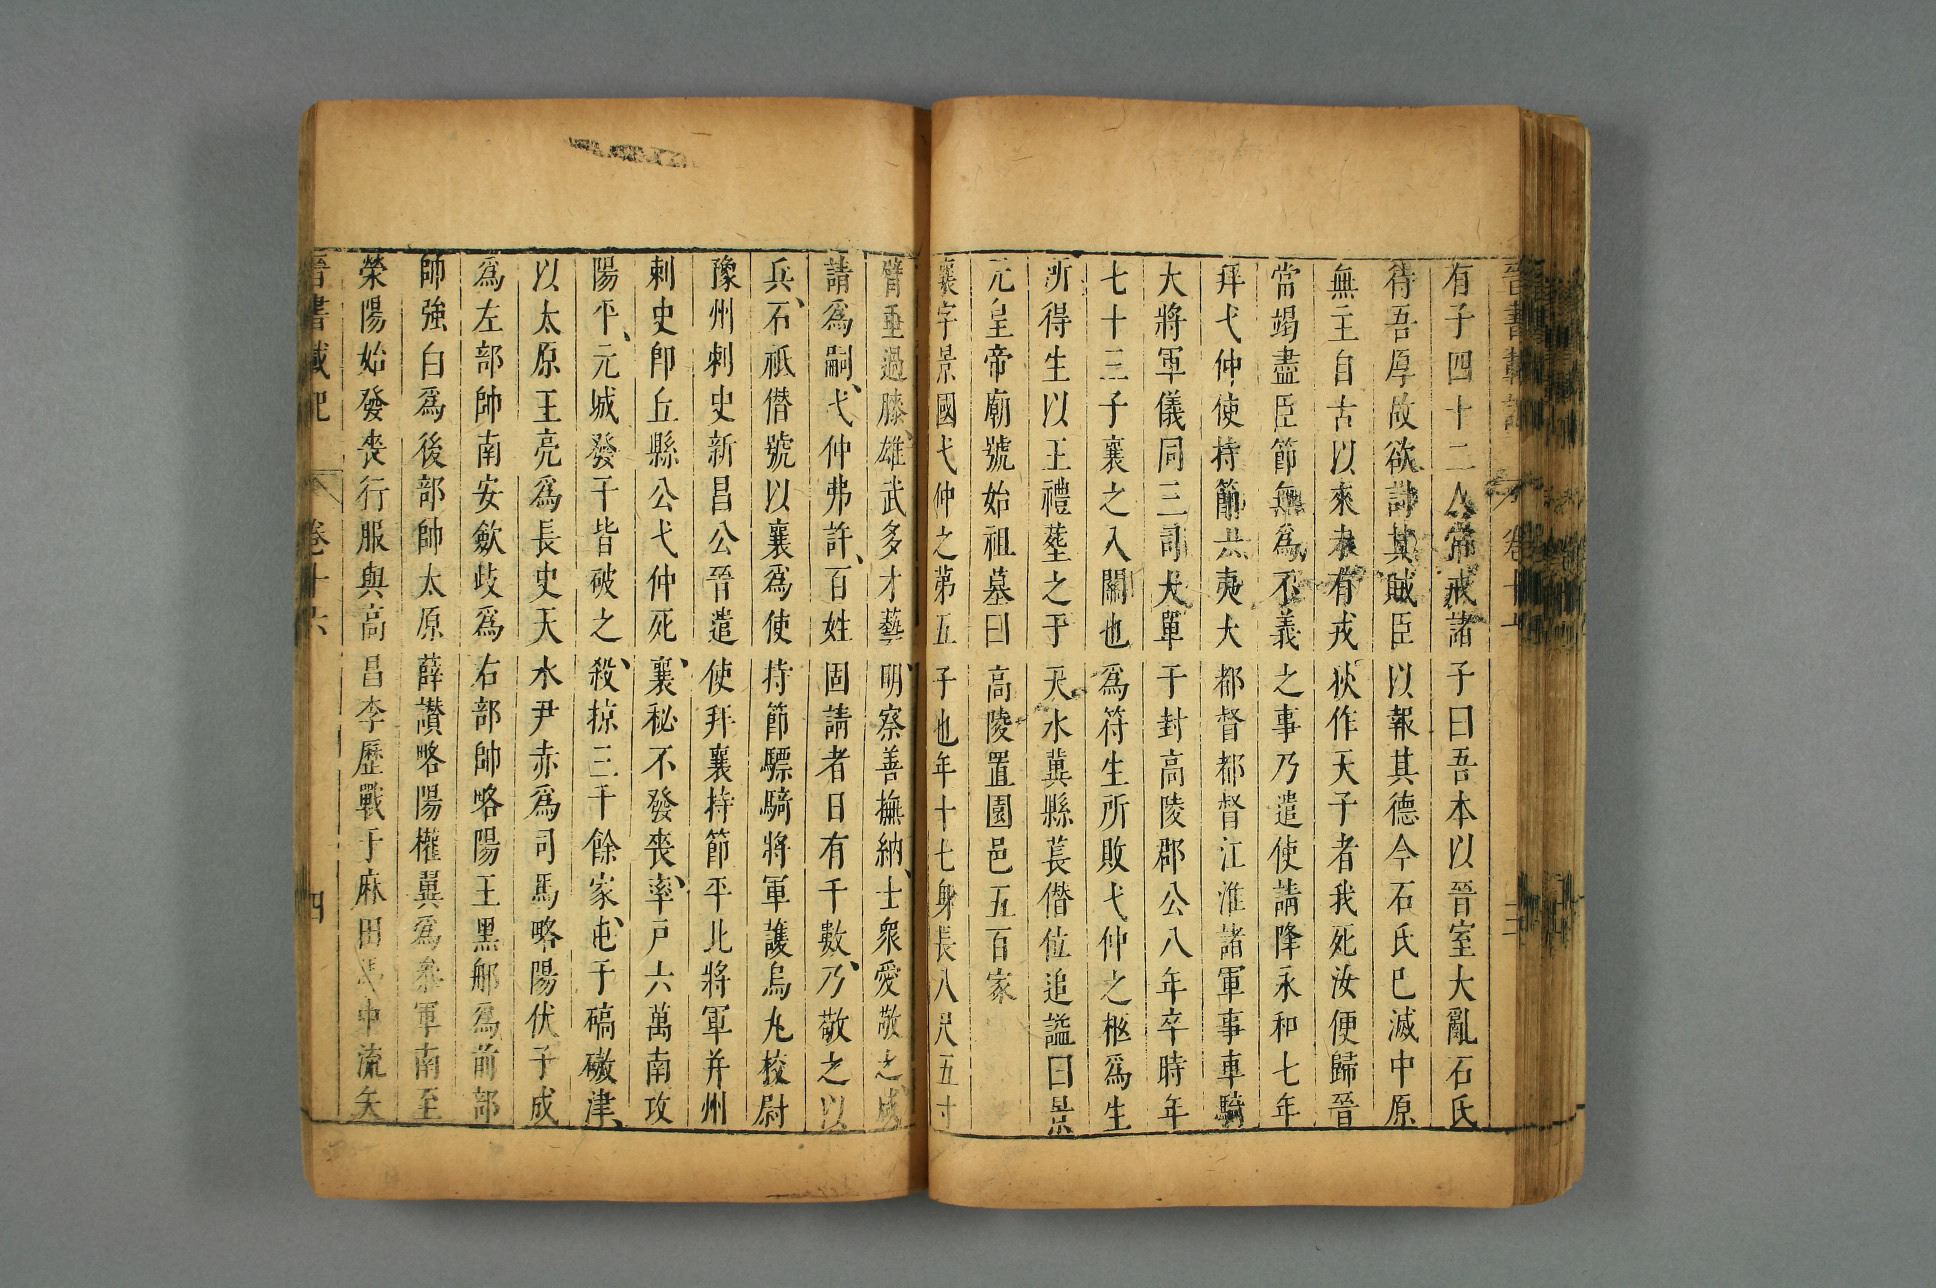 晉書載記 卷十六 三
有子四十二人常戒諸子曰吾本以晉室大亂石氏
待吾厚故欲討其賊臣以報其德今石氏已滅中原
無主自古以來未有戎狄作天子者我死汝便歸晉
當竭盡臣節無爲不義之事乃遣使請降永和七年
拜弋仲使持節六夷大都督都督江淮諸軍事車騎
大將軍儀同三司大單于封高陵郡公八年卒時年
七十三子襄之入關也爲符生所敗弋仲之柩爲生
所得生以王禮葬之于天水冀縣萇僭位追謚曰景
元皇帝廟號始祖墓曰高陵置園邑五百家
襄字景國弋仲之第五子也年十七身長八尺五寸
臂垂過膝雄武多才藝明察善撫納士衆愛敬之咸
請爲嗣弋仲弗許百姓固請者日有千數乃敬之以
兵石祗僭號以襄爲使持節驃騎將軍護烏丸校尉
豫州刺史新昌公晉遣使拜襄持節平北將軍并州
刺史卽丘縣公弋仲死襄秘不發喪率戶六萬南攻
陽平元城發干皆破之殺掠三千餘家屯于碻磝津
以太原王亮爲長史天水尹赤爲司馬略陽伏子成
爲左部帥南安斂歧爲右部帥略陽王黑郍爲前部
帥強白爲後部帥太原薛讃略陽權翼爲叅軍南至
滎陽始發喪行服與高昌李歷戰于麻田馬中流矢
晉書載記 卷十六 四